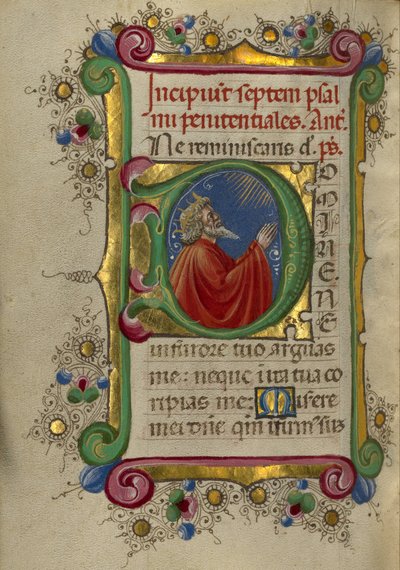 Incipiūt septem psal
mi penitentiales. Ant.
Ne reminiscaris d. ps.
D
O
M
I
N
E.
N
E
in furore tuo arguas
me: neque i ira tua co
ripias me: Misere
mei dñe qm infirm sus